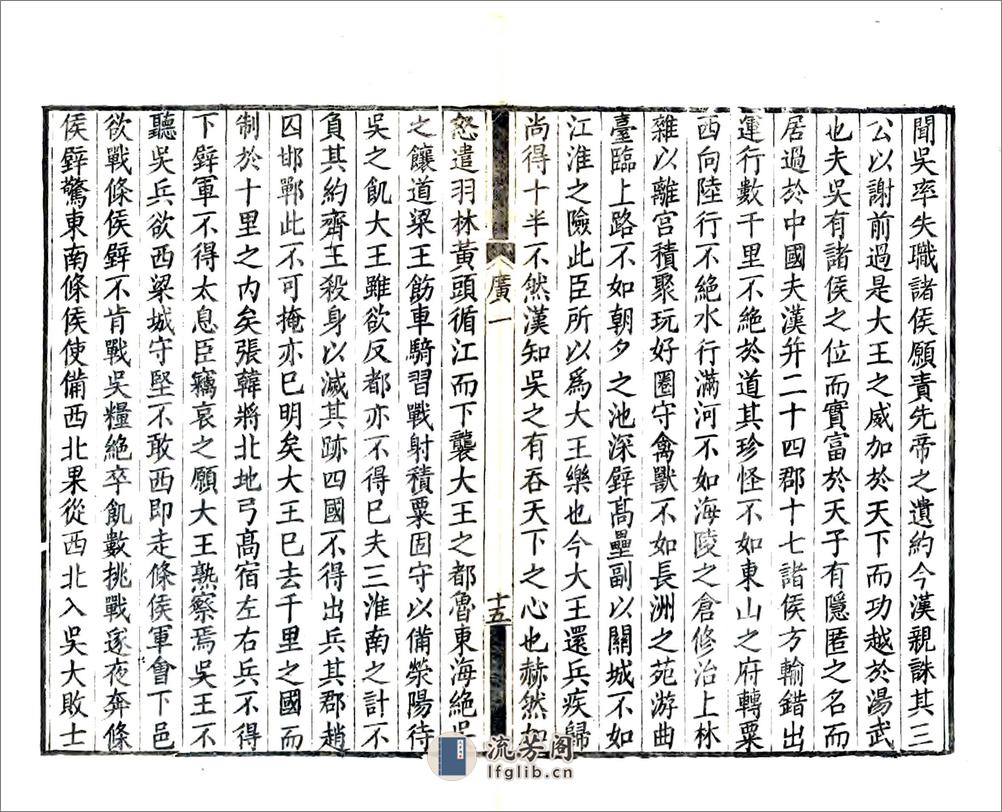 聞吳率失職諸侯願責先帝之遺約今漢親誅其三
公以謝前過是大王之威加於天下而功越於湯武
也夫吳有諸侯之位而實富於天子有隱匿之名而
居過於中國夫漢并二十四郡十七諸侯方輸錯出
運行數千里不絕於道其珍怪不如東山之府轉粟
西向陸行不絕水行滿河不如海陵之倉修治上林
雜以離宮積聚玩好圈守禽獸不如長洲之苑游曲
臺臨上路不如朝夕之池深壁高壘副以關城不如
江淮之險此臣所以為大王樂也今大王還兵疾歸
尚得十半不然漢知吳之有吞天下之心也赫然如
廣一
十五
怒遣羽林黃頭循江而下襲大王之都魯東海絕吳
之饟道梁王飭車騎習戰射積粟固守以備滎陽待
吳之飢大王雖欲反都亦不得已夫三淮南之計不
負其約齊王殺身以滅其跡四國不得出兵其郡趙
囚邯鄲此不可掩亦已明矣大王已去千里之國而
制於十里之內矣張韓將北地弓高宿左右兵不得
下壁軍不得太息臣竊哀之願大王熟察焉吳王不
聽吳兵欲西梁城守堅不敢西即走條侯軍會下邑
欲戰條侯壁不肯戰吳糧絕卒飢數挑戰遂夜奔條
侯壁驚東南條侯使備西北果從西北入吳大敗士
流芳阁
lfglib.cn